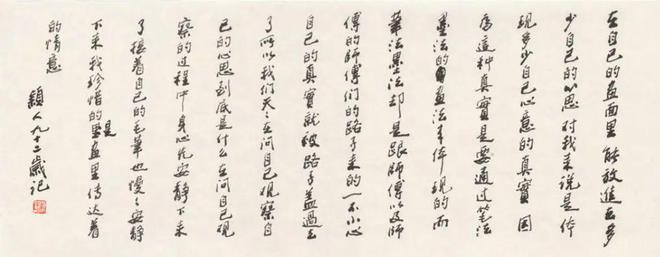 在自己的画面里能放進去多
少自己的心思对我来说是体
现多少自己心意的真實因
为这种真實是要通过笔法
墨法的画法来体现的而
筆法墨法却是跟師傅以及師
傅的師傅们的路子来的一不小心
自己的真實就被路子蓋过去
了所以我们天天在问自己观察自
己的心思到底是什么在问自己观
察的过程中身心先安静下来
了接着自己的毛筆也慢慢安静
下来我珍惜的是墨画里传达着
的情意
穎人九十二歲记